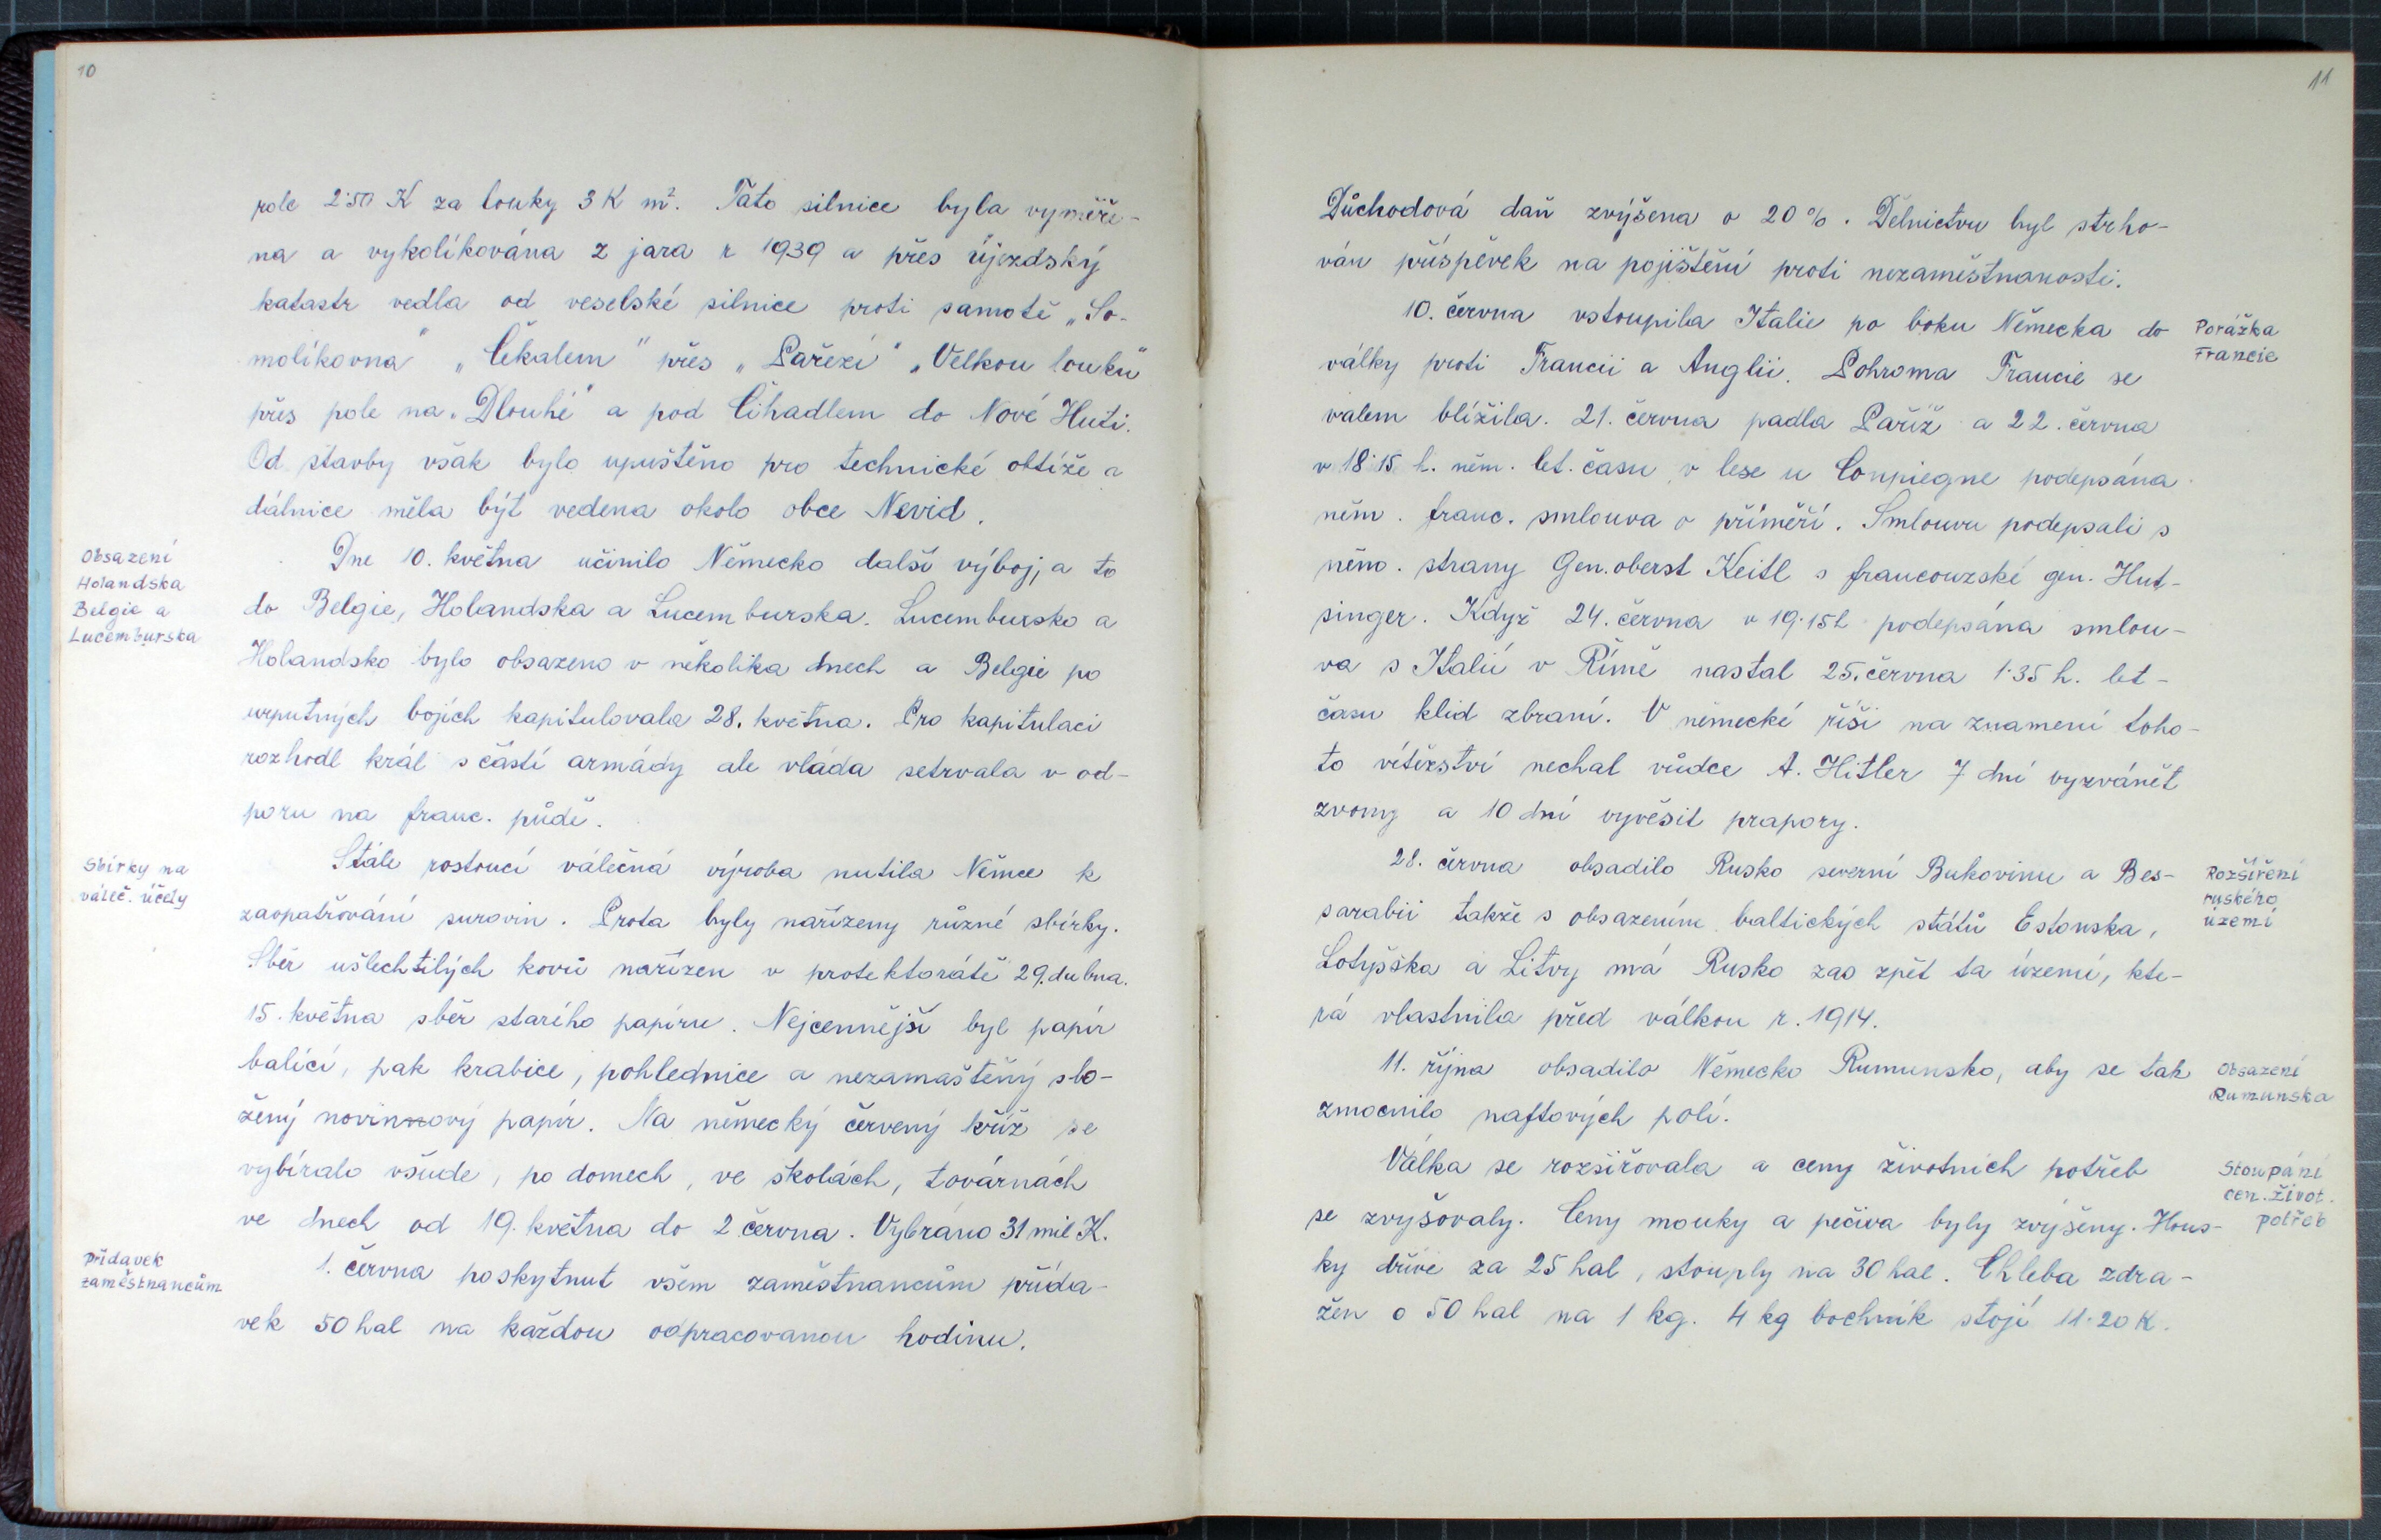 10
role 2·50 K za louky 3 K m². Tato silnice byla vyměře-
na a vykolíkována z jara r 1939 a přes újezdský
katastr vedla od veselské silnice proti samotě „So-
molíkovna" „Čekalem" přes „Pařezí" „Velkou louku"
přes pole na „Dlouhé" a pod Čihadlem do Nové Huti.
Od stavby však bylo upuštěno pro technické obtíže a
dálnice měla být vedena okolo obce Nevid.
Obsazení
Holandska
Belgie a
Lucemburska
Dne 10. května učinilo Německo další výboj, a to
do Belgie, Holandska a Lucemburska. Lucembursko a
Holandsko bylo obsazeno v několika dnech a Belgie po
urputných bojích kapitulovala 28. května. Pro kapitulaci
rozhodl král s částí armády ale vláda setrvala v od-
poru na franc. půdě.
Sbírky na
váleč. účely
Stále rostoucí válečná výroba nutila Němce k
zaopatřování surovin. Prota byly nařízeny různé sbírky.
Sběr ušlechtilých kovů nařízen v protektorátě 29. dubna.
15. května sběr starého papíru. Nejcennější byl papír
balící, pak krabice, pohlednice a nezamaštěný slo-
žený novinový papír. Na německý červený kříž se
vybíralo všude, po domech, ve školách, továrnách
ve dnech od 19. května do 2 června. Vybráno 31 mil K.
Přídavek
zaměstnancům
1. června poskytnut všem zaměstnancům přída-
vek 50 hal na každou odpracovanou hodinu.
11
Důchodová daň zvýšena o 20%. Dělnictvu byl strho-
ván příspěvek na pojištění proti nezaměstnanosti.
10. června vstoupila Italie po boku Německa do
války proti Francii a Anglii. Pohroma Francie se
valem blížila. 21. června padla Paříž a 22. června
v 18·15 h. něm. let. času v lese u Conpiegne podepsána
něm. franc. smlouva o příměří. Smlouvu podepsali s
něm. strany Gen. oberst Keitl s francouzské gen. Hut-
singer. Když 24. června v 19·15h podepsána smlou-
va s Italií v Římě nastal 25. června 1·35 h. let-
času klid zbraní. V německé říši na znamení toho-
to vítězství nechal vůdce A. Hitler 7 dní vyzvánět
zvony a 10 dní vyvěsit prapory.
Porážka
Francie
28. června obsadilo Rusko severní Bukovinu a Bes-
sarabii takže s obsazením baltických států Estonska,
Lotyšska a Litvy má Rusko zas zpět ta území, kte-
rá vlastnila před válkou r. 1914.
Rozšíření
ruského
území
11. října obsadilo Německo Rumunsko, aby se tak
zmocnilo naftových polí.
Obsazení
Rumunska
Válka se rozšiřovala a ceny životních potřeb
se zvyšovaly. Ceny mouky a pečiva byly zvýšeny. Hous-
ky dříve za 25 hal, stouply na 30 hal. Chleba zdra-
žen o 50 hal na 1 kg. 4 kg bochník stojí 11·20 K.
Stoupání
cen. život.
potřeb